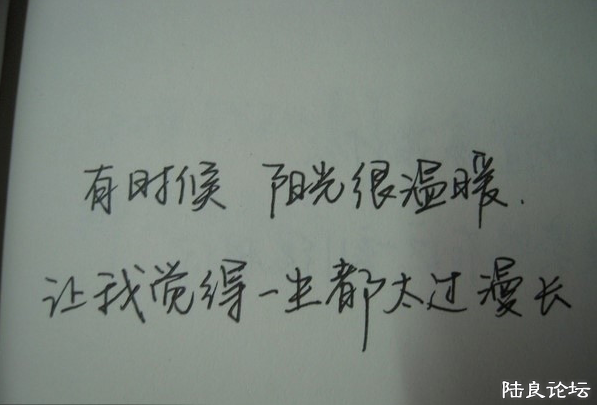 有时候 阳光很温暖.
让我觉得一生都太过漫长
陆良论坛